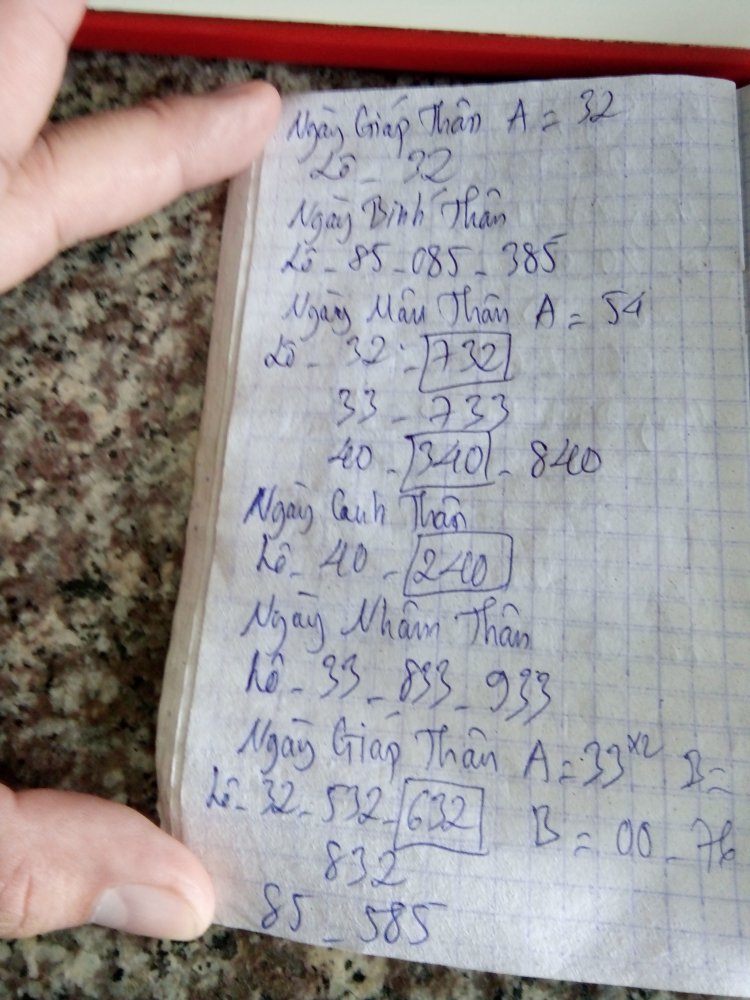 Ngày Giáp Thân A = 32
Lô - 32
Ngày Bính Thân
Lô - 85 - 085 - 385
Ngày Mậu Thân A = 54
Lô - 32 - 732
33 - 733
40 - 340 - 840
Ngày Canh Thân
Lô - 40 - 240
Ngày Nhâm Thân
Lô - 33 - 833 - 933
Ngày Giáp Thân A = 33 x2 B =
Lô - 32 - 532 - 632 B = 00 - 76
832
85 - 585